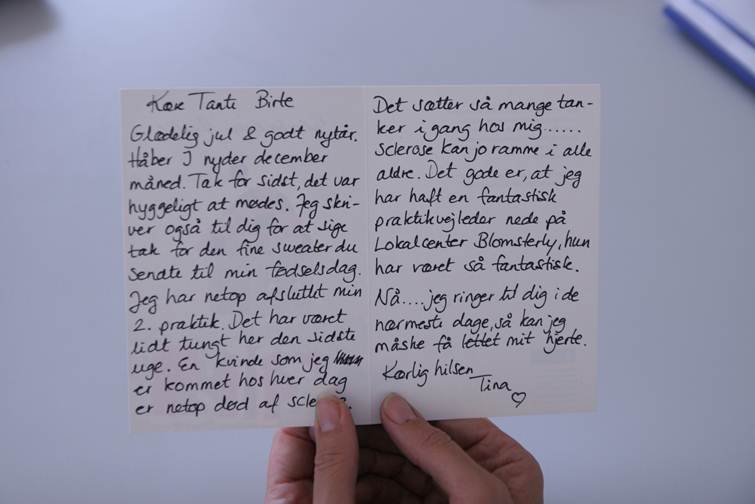 Kære Tante Birte
Glædelig jul & godt nytår.
Håber I nyder december
måned. Tak for sidst, det var
hyggeligt at mødes. Jeg skri-
ver også til dig for at sige
tak for den fine sweater du
sendte til min fødselsdag.
Jeg har netop afsluttet min
2. praktik. Det har været
lidt tungt her den sidste
uge. En kvinde som jeg
er kommet hos hver dag
er netop død af
Det sætter så mange tan-
ker i gang hos mig......
Sclerose kan jo ramme i alle
aldre. Det gode er, at jeg
har haft en fantastisk
praktikvejleder nede på
Lokalcenter Blomsterly, hun
har været så fantastisk.
Nå....jeg ringer til dig i de
nærmeste dage, så kan jeg
måske få lettet mit hjerte.
Kærlig hilsen
Tina